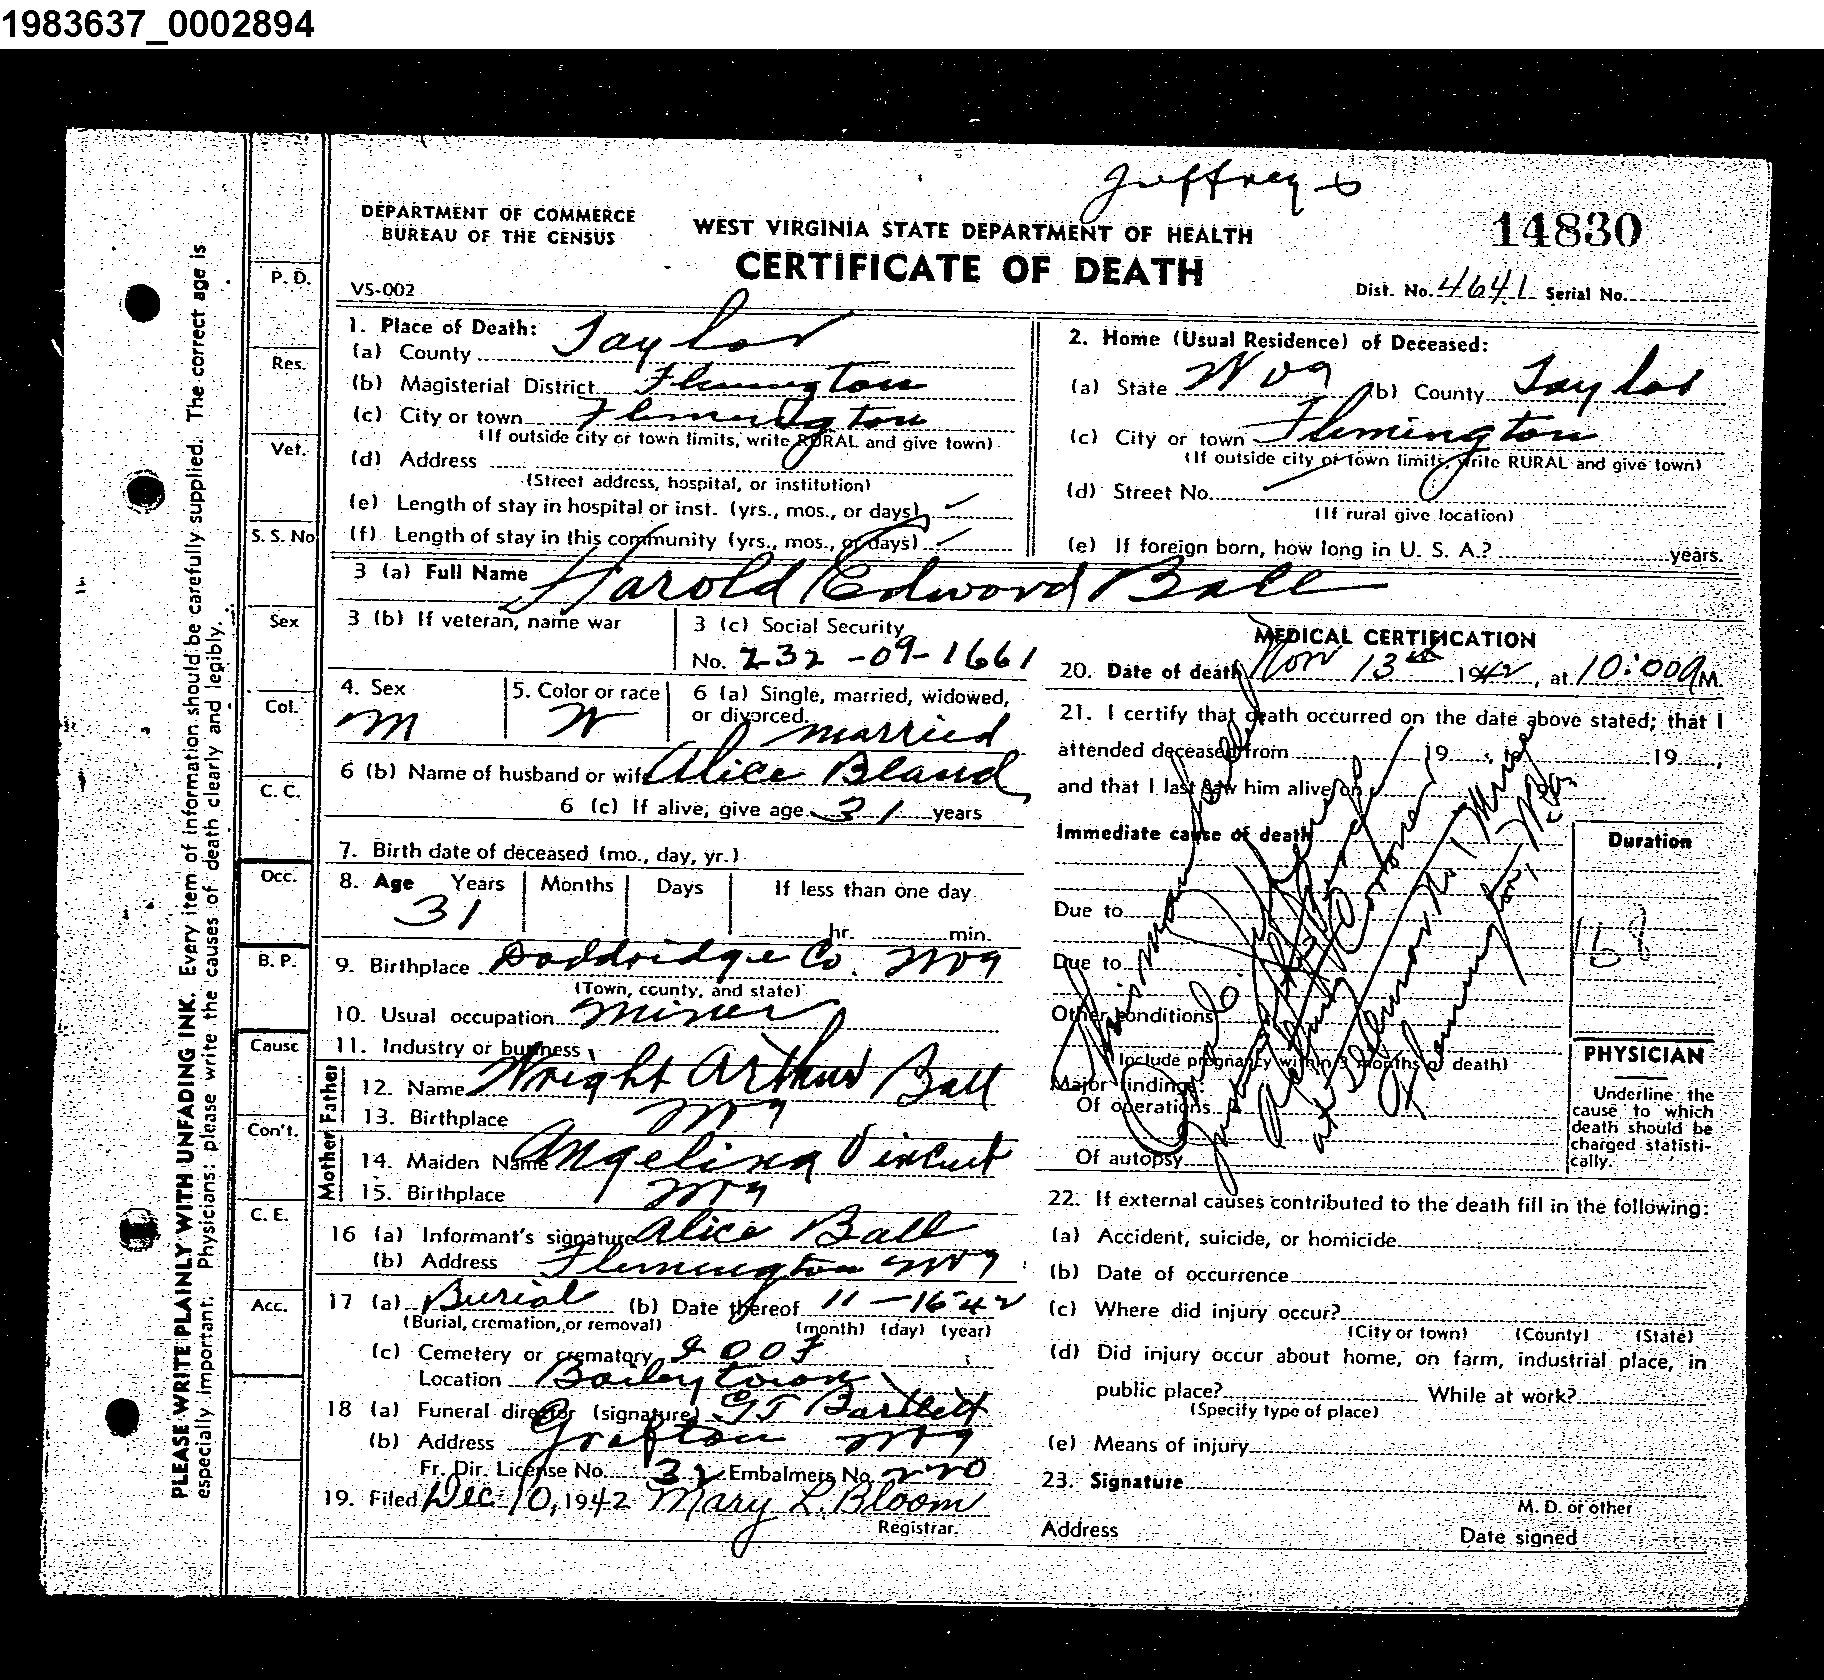 1983637_0002894
14830
DEPARTMENT OF COMMERCE
BUREAU OF THE CENSUS
WEST VIRGINIA STATE DEPARTMENT OF HEALTH
CERTIFICATE OF DEATH
VS-002
Dist. No. 4641 Serial No.
PLEASE WRITE PLAINLY WITH UNFADING INK. Every item of information should be carefully supplied. The correct age is
especially important. Physicians: please write the causes of death clearly and legibly.
P. D.
Res.
Vet.
S. S. No
Sex
Col.
C. C.
Occ.
B. P.
Cause
Con't.
C. E.
Acc.
1. Place of Death:
(a) County Taylor
(b) Magisterial District Flemington
(c) City or town Flemington
(If outside city or town limits, write RURAL and give town)
(d) Address
(Street address, hospital, or institution)
(e) Length of stay in hospital or inst. (yrs., mos., or days)
(f) Length of stay in this community (yrs., mos., or days)
2. Home (Usual Residence) of Deceased:
(a) State W Va (b) County Taylor
(c) City or town Flemington
(If outside city or town limits, write RURAL and give town)
(d) Street No.
(If rural give location)
(e) If foreign born, how long in U. S. A.? years.
3 (a) Full Name Harold Edward Ball
3 (b) If veteran, name war
3 (c) Social Security
No. 232-09-1661
4. Sex
M
5. Color or race
W
6 (a) Single, married, widowed,
or divorced. married
6 (b) Name of husband or wife Alice Bland
6 (c) If alive, give age 31 years
7. Birth date of deceased (mo., day, yr.)
8. Age Years Months Days If less than one day
31
hr. min.
9. Birthplace Doddridge Co. W Va
(Town, county, and state)
10. Usual occupation Miner
11. Industry or business
Father
12. Name Wright Arthur Ball
13. Birthplace W Va
Mother
14. Maiden Name Angelina Vincent
15. Birthplace W Va
16 (a) Informant's signature Alice Ball
(b) Address Flemington W Va
17 (a) Burial (b) Date thereof 11-16-42
(Burial, cremation, or removal) (month) (day) (year)
(c) Cemetery or crematory IOOF
Location Baileytown
18 (a) Funeral director (signature) GT Bartlett
(b) Address Grafton W Va
Fr. Dir. License No. 32 Embalmers No. 220
19. Filed Dec 10, 1942 Mary L. Bloom
Registrar.
MEDICAL CERTIFICATION
20. Date of death Nov 13th 1942, at 10:00 a M.
21. I certify that death occurred on the date above stated; that I
attended deceased from 19 , 19 ,
and that I last saw him alive on
Immediate cause of death
Due to
Due to
Other conditions
(Include pregnancy within 3 months of death)
Major findings:
Of operations
Of autopsy
This man killed
Coroner
Flemington, W Va.
Duration
168
PHYSICIAN
Underline the
cause to which
death should be
charged statisti-
cally.
22. If external causes contributed to the death fill in the following:
(a) Accident, suicide, or homicide
(b) Date of occurrence
(c) Where did injury occur?
(City or town) (County) (State)
(d) Did injury occur about home, on farm, industrial place, in
public place? While at work?
(Specify type of place)
(e) Means of injury
23. Signature
M. D. or other
Address Date signed